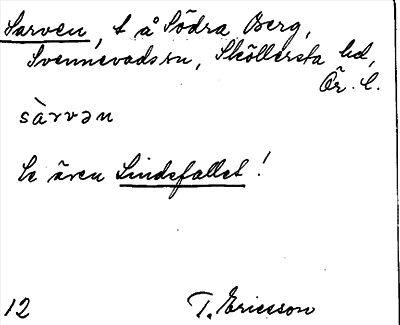 Sarven, t å Södra Berg,
Svennevads sn, Sköllersta hd,
Ör. l.
sàrvən
Se även Lindefallet!
12 T. Ericsson